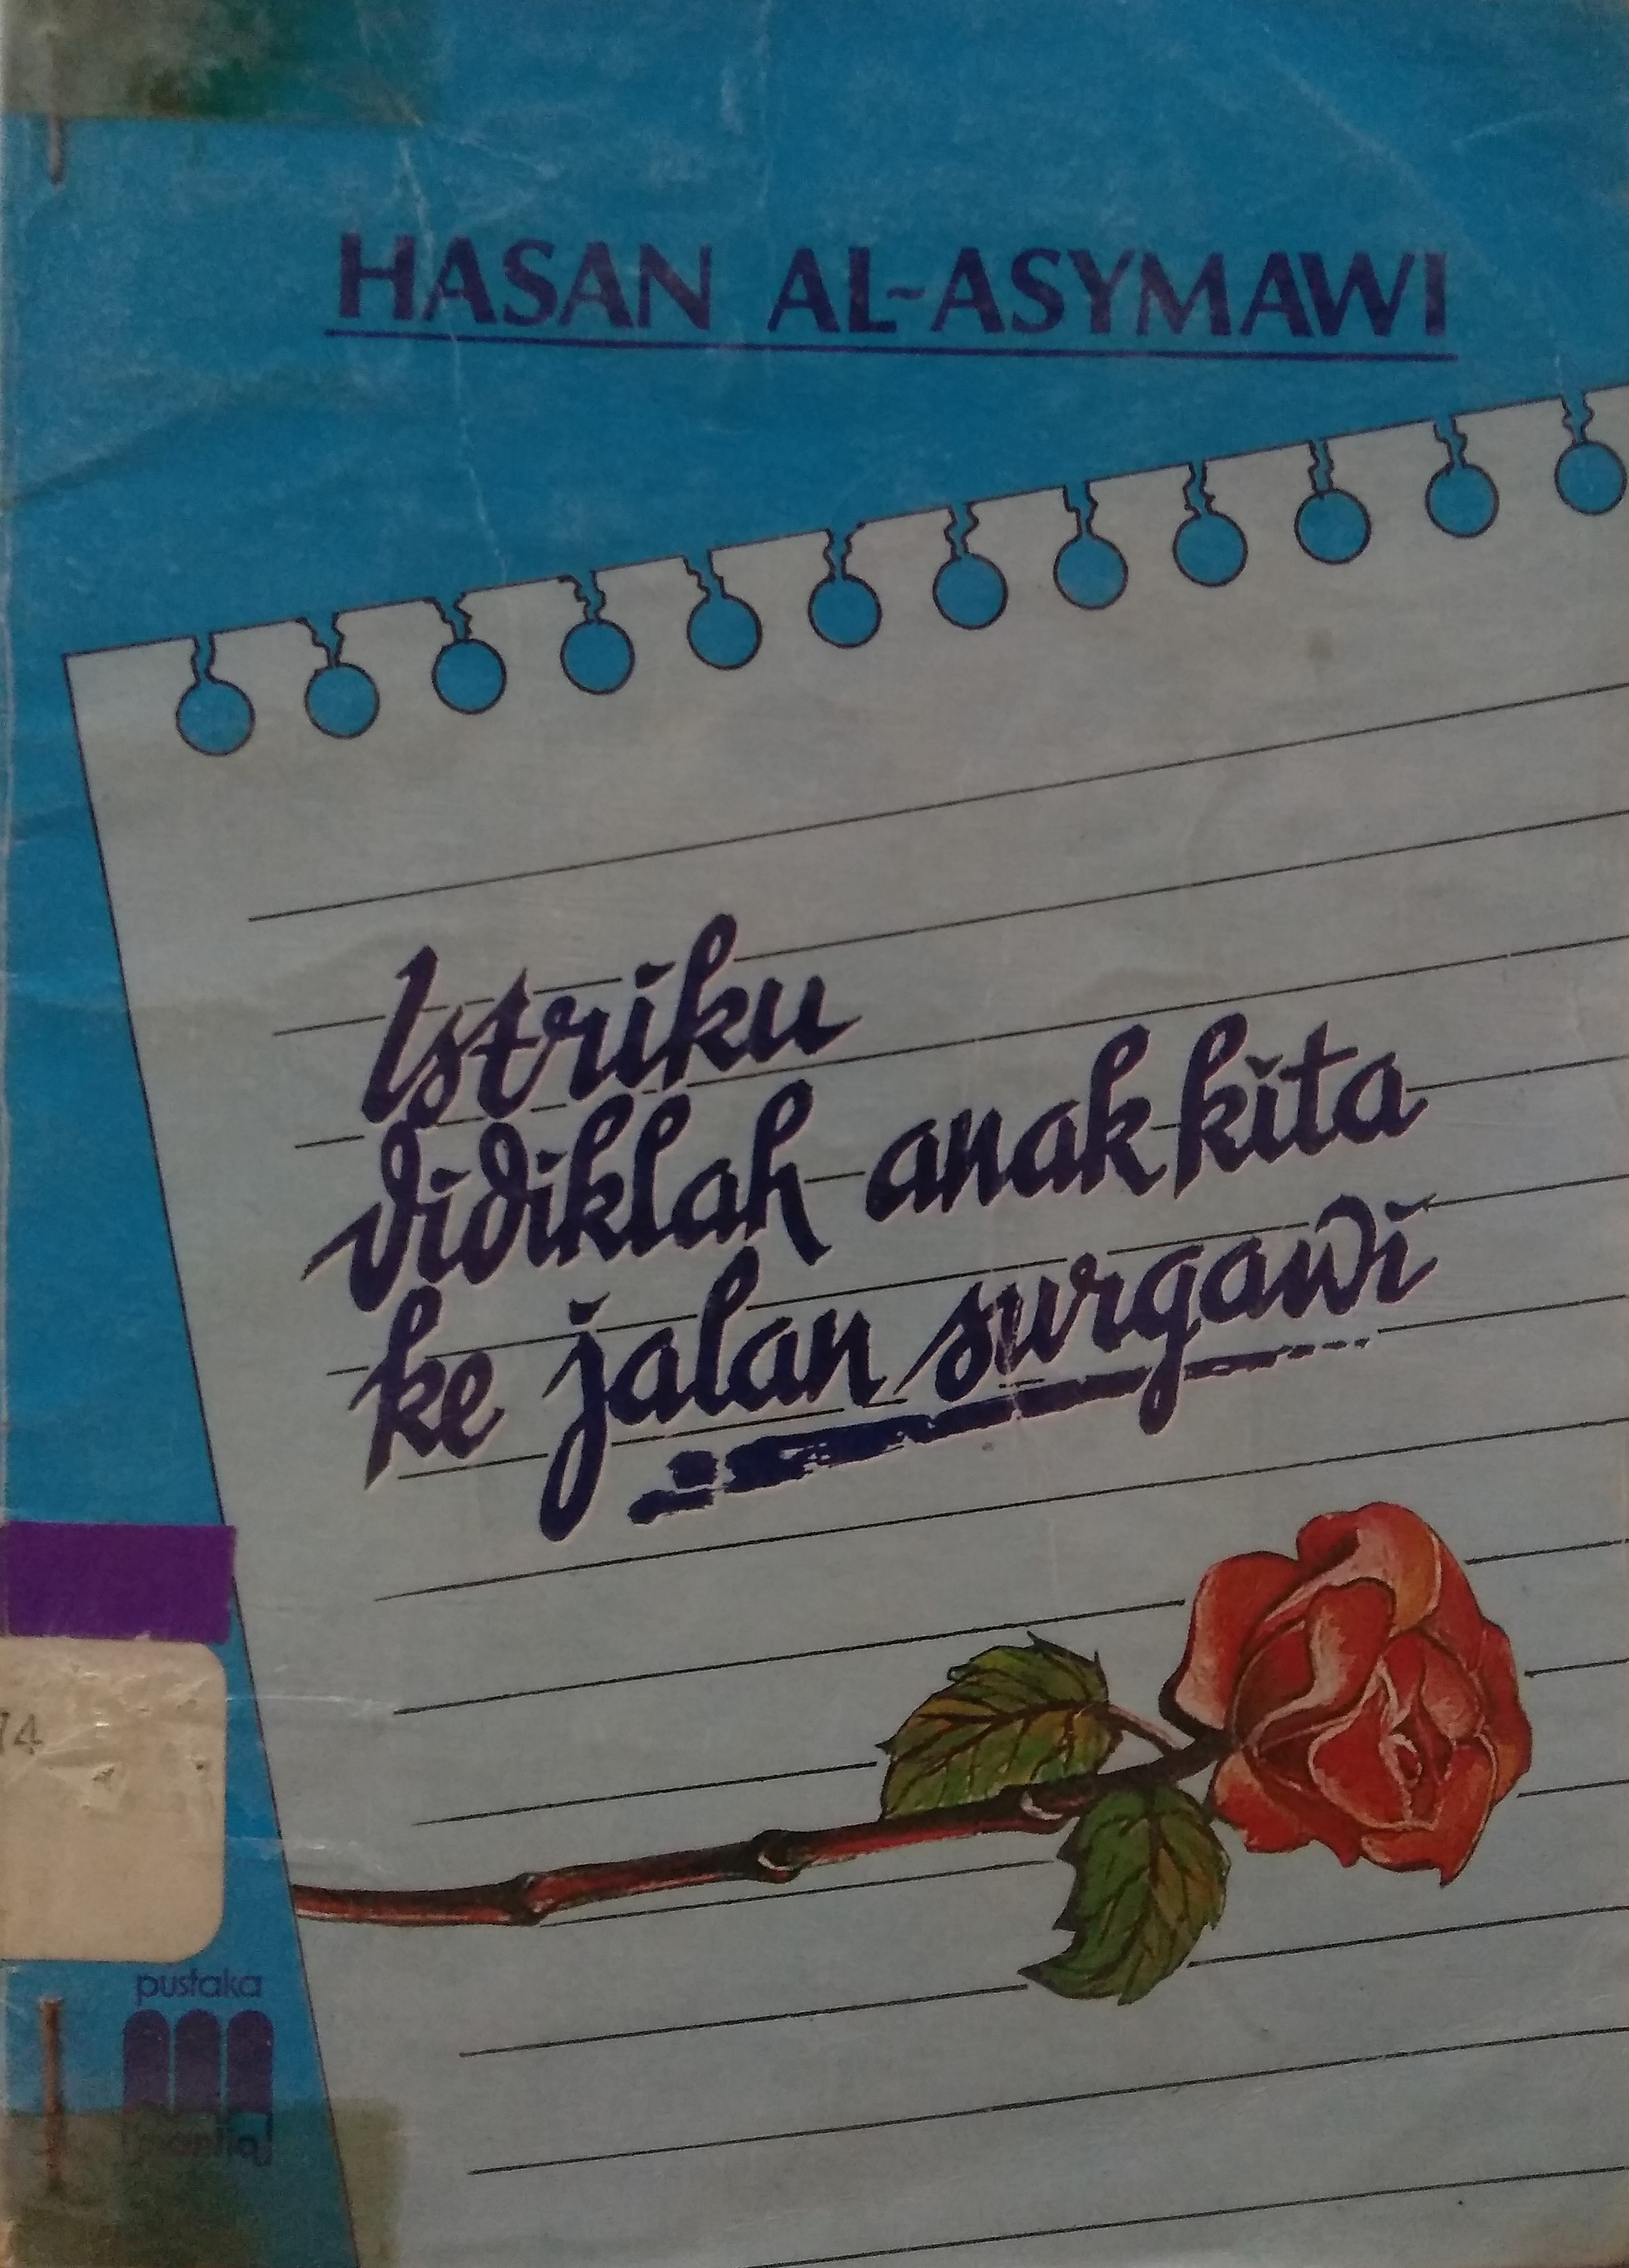 HASAN AL-ASYMAWI
Istriku
didiklah anak kita
ke jalan surgawi
74
pustaka